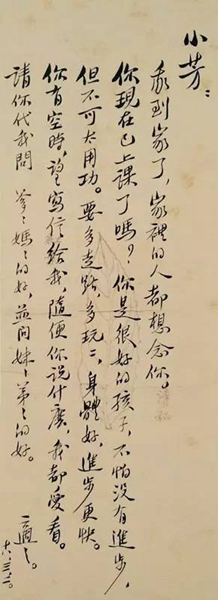 小芳：
我到家了，家裡的人都想念你。
你現在已上課了嗎？你是很好的孩子，不怕沒有進步，
但不可太用功。要多走路，多玩〻，身體好，進步更快。
你有空時，望寫信給我，隨便你說什麼，我都愛看。
請你代我問 爹〻媽〻的好，並問妹〻弟〻的好。
適之。